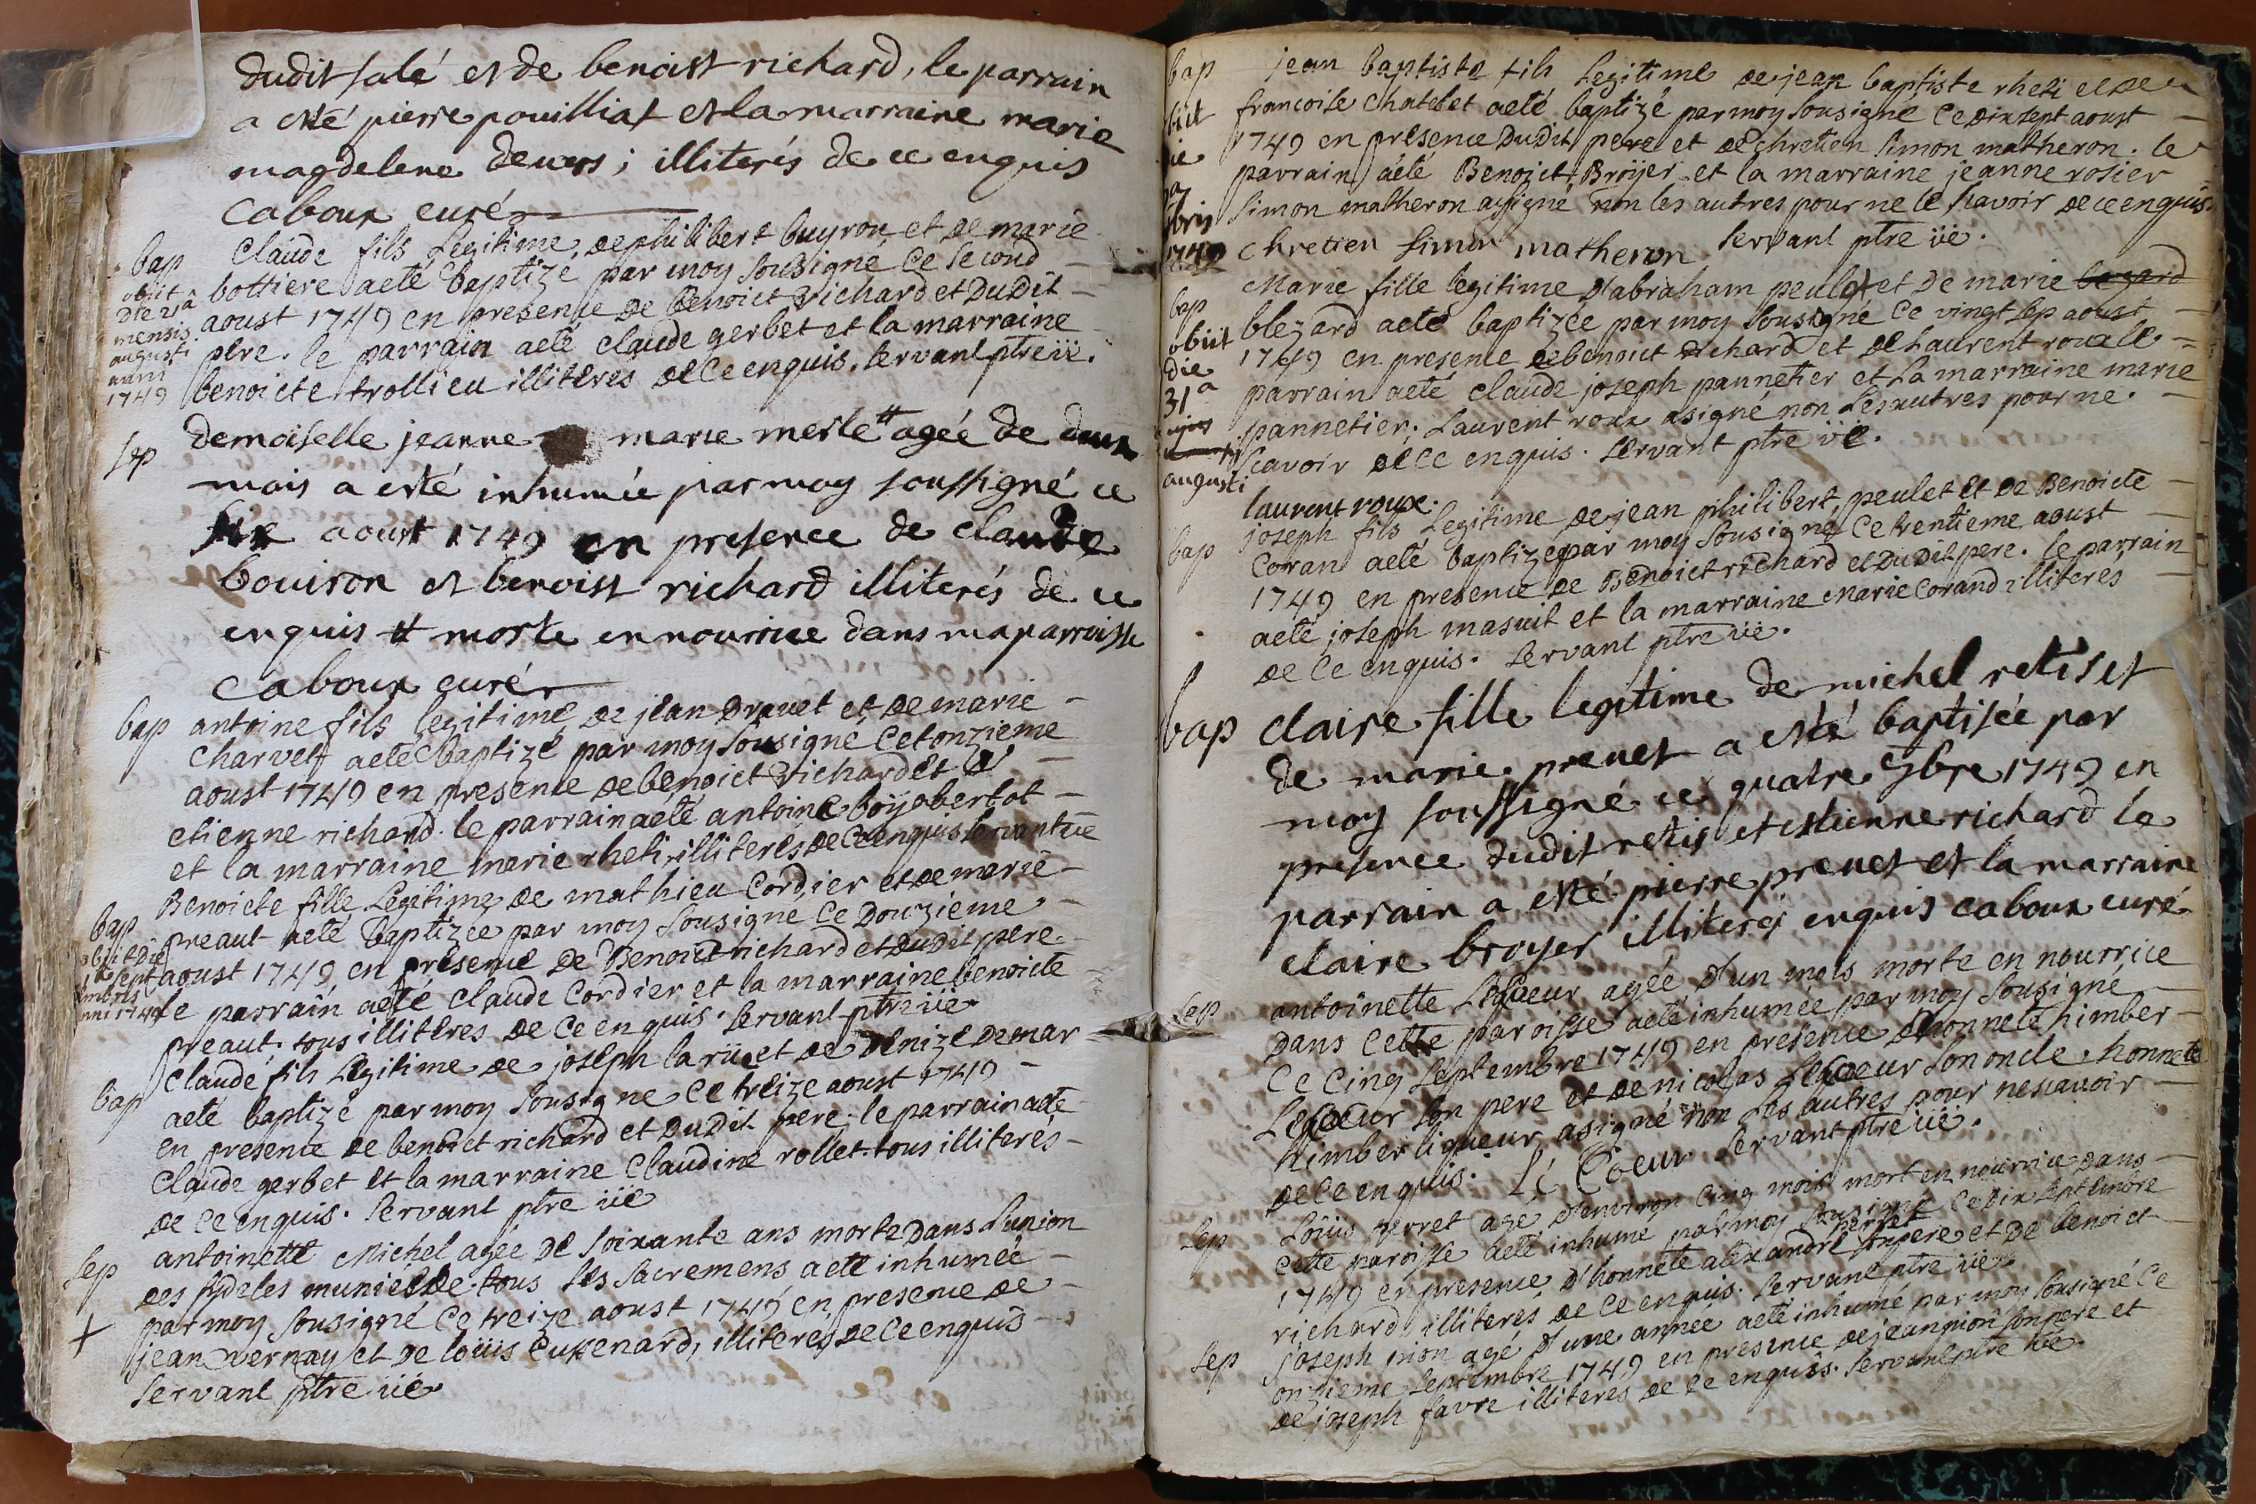 dudit salé et de benoist richard, le parrain
a esté pierre pouilliat et la marraine marie
magdelene devers; illiterés de ce enquis
caboux curé
bap
obiit
die 21a
mensis
augusti
anni
1749
Claude fils Legitime, de philibert buyron et de marie
bottiere aeté baptizé par moy sousigné ce second
aoust 1749 en presence de benoict richard et dudit
pere. le parrain aeté claude gerbet et la marraine
benoicte trollieu illiteres de ce enquis. servant ptre vic.
sep
demoiselle jeanne marie merle # agée de deux
mois a esté inhumée par moy soussigné ce
six aoust 1749 en presence de claude
bouiron et benoist richard illiterés de ce
enquis # morte en nourrice dans ma parroisse
caboux curé
bap
antoine fils legitime de jean drevet et de marie
Charvet aeté baptizé par moy sousigné ce onzieme
aoust 1749 en presence de benoict richard et d'
etienne richard. le parrain aété antoine boÿobertot
et la marraine marie rheti, illiterés de ce enquis servant vic
bap
obiit die
septembris
anni 1749
Benoicte fille Legitime de mathieu Cordier et de marie
preaut aeté baptizée par moy sousigné ce Douzieme
aoust 1749 en presence de Benoict richard et dudit pere.
le parrain aeté claude Cordier et la marraine benoicte
preaut. tous illiteres de ce enquis. servant ptre vic
bap
Claude fils legitime de joseph larüe et de Denize Demar
aeté baptizé par moy sousigne ce treize aoust 1749
en presence de benoict richard et dudit pere. le parrain aete
Claude gerbet et la marraine Claudine rollet. tous illiterés
de ce enquis. servant ptre vic
sep
+
antoinette Michel agée de soixante ans morte dans L'union
des fideles muniede tous ses sacremens aeté inhumée
par moy sousigné ce treize aoust 1749 en presence de
jean vernay et de loüis cussenard, illiterés de ce enquis
servant ptre vic
bap
obiit
die
bris
1749
jean baptiste fils legitime de jean baptiste rheti et de
francoise Chatelet aeté baptizé par moy sousigné ce dixsept aoust
1749 en presence dudit pere et de chretien simon matheron. le
parrain aété Benoict Broijer et la marraine jeanne rosier
simon matheron asigné non les autres pour ne le scavoir de ce enquis.
chretien simon matheron servant ptre vic.
bap
obiit
die
31a
augusti
Marie fille legitime d'abraham peulet et de marie bezard
blezard aeté baptizée par moy sousigné ce vingt sep aoust
1749 en presence de benoict richard et de Laurent roux le
parrain aeté claude joseph pannetier et la marraine marie
pannetier; Laurent roux asigné non les autres pour ne
scavoir de ce enquis. servant ptre vic.
laurent roux.
bap
joseph fils Legitime de jean philibert peulet et de Benoicte
Coran aeté baptize par moy sousigné ce trentieme aoust
1749 en presence de Benoict richard et dudit pere. le parrain
aeté joseph masuit et la marraine Marie Corand illiteres
de ce enquis. servant ptre vic.
bap
claire fille legitime de michel retis et
de marie prevet a esté baptisée par
moy soussigné ce quatre 7bre 1749 en
presence dudit retis et estienne richard le
parrain a esté pierre prevet et la marraine
claire broyer illiterés enquis caboux curé
sep
antoinette Lecoeur agée d'un mois morte en nourrice
dans cette paroisse aeté inhumée par moy sousigné
ce cinq septembre 1749 en presence d'honneté himber
Lecoeur son pere et de nicolas Lecoeur son oncle. honneté
himber liqueur asigné non les autres pour ne scavoir
de ce enquis. Le Coeur servant ptre vic.
sep
Loüis perret agé d'environ cinq mois mort en nourrice dans
cette paroisse aeté inhumé par moy sousigné ce dix septembre
1749 en presence d'honneté alexandre perret son pere et de benoict
richard, illiteres de ce enquis. servant ptre vic
sep
joseph nion agé d'une année aeté inhumé par moy sousigné ce
onzieme septembre 1749 en presence de jean nion son pere et
de joseph favre illiteres de ce enquis. servant ptre vic